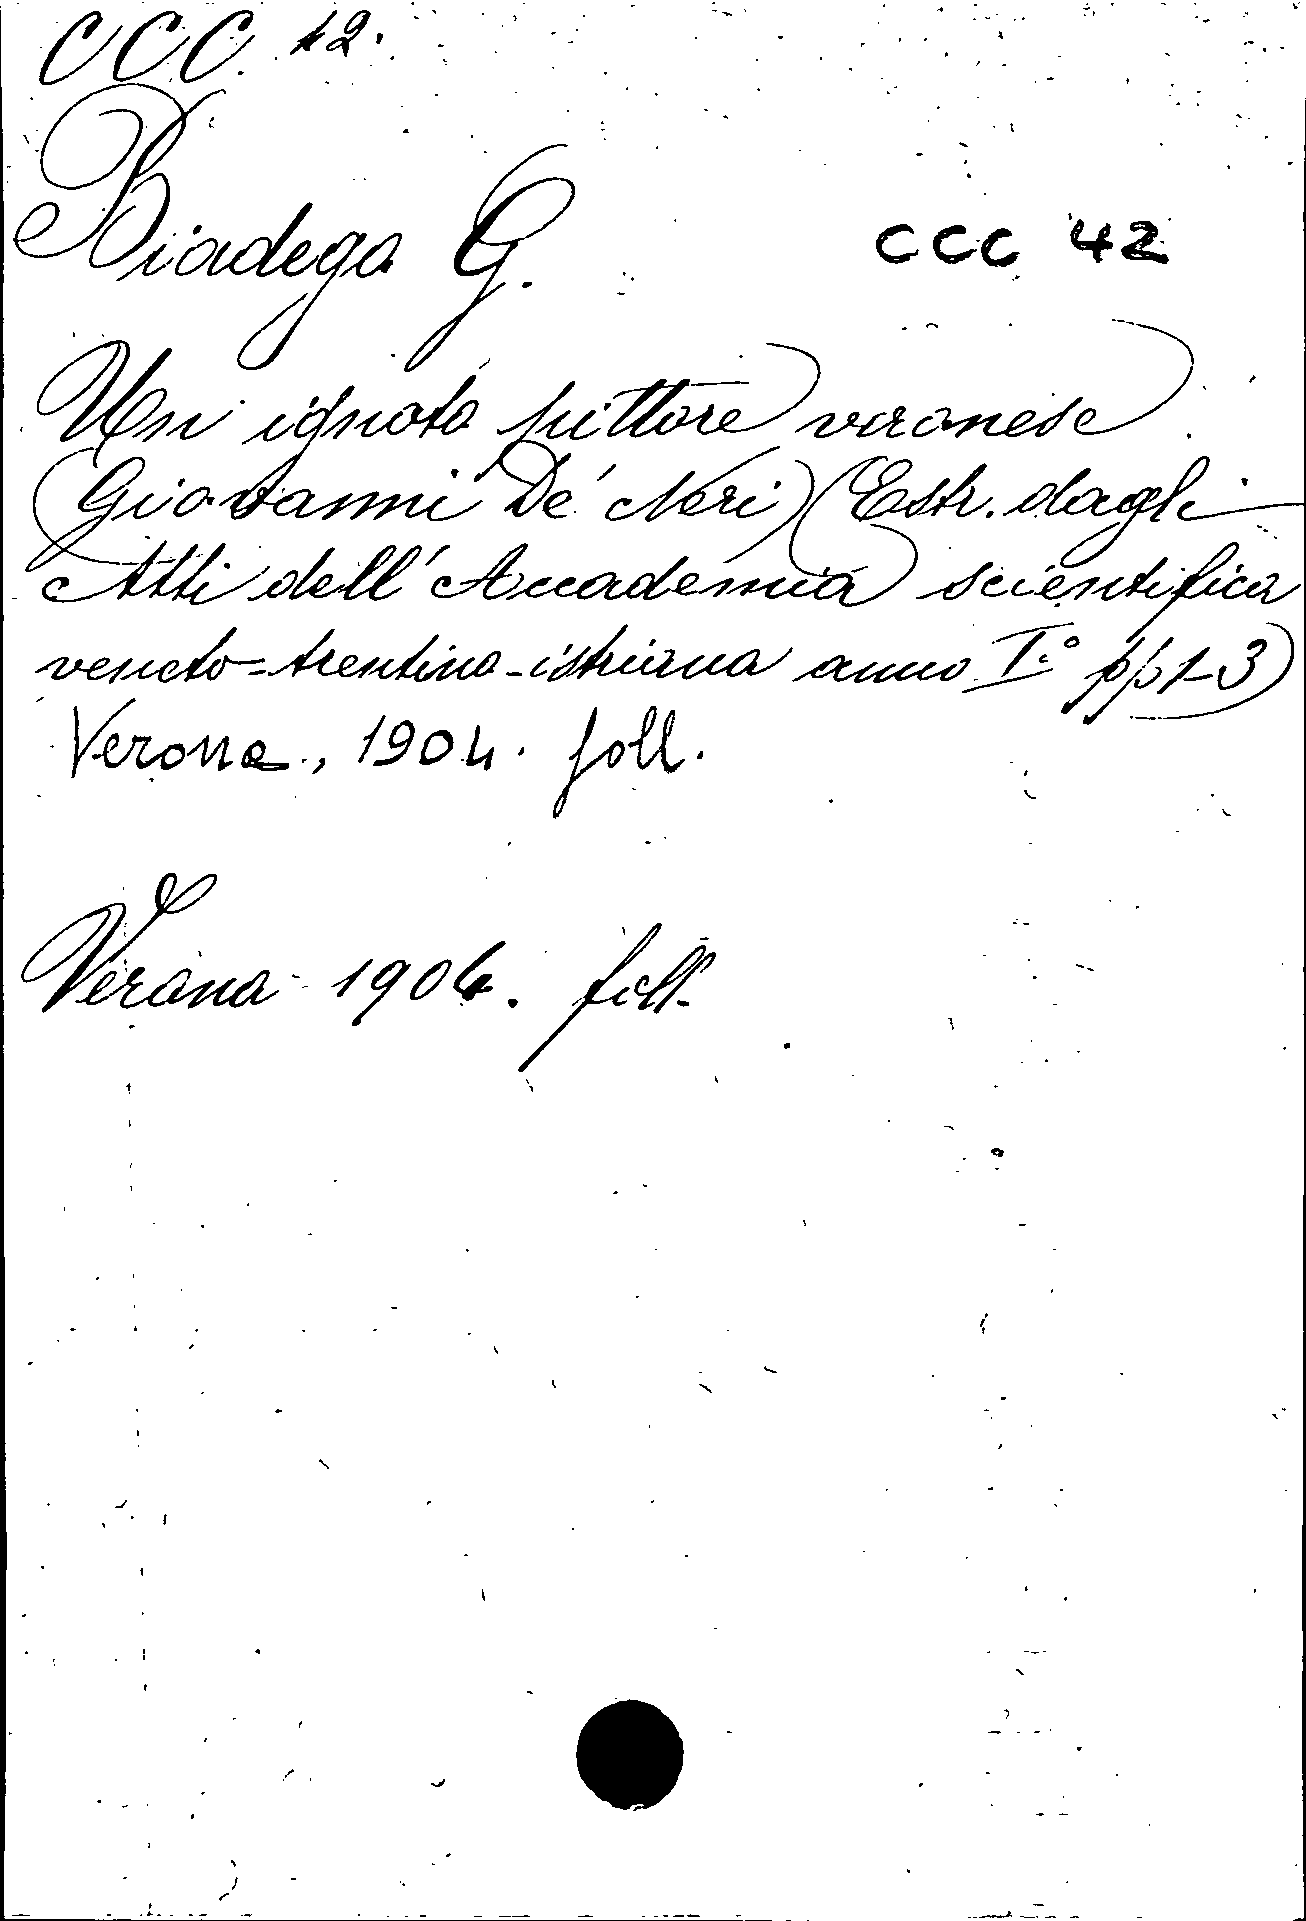 CCC. 42.
Biadego G. CCC 42
Un ignoto pittore veronese
(Giovanni De' Neri) (Estr. dagli
Atti dell'Accademia scientifica
veneto-trentina-istriana anno I.° pp 1-3)
Verona, 1904. foll.
Verona 1904. foll.